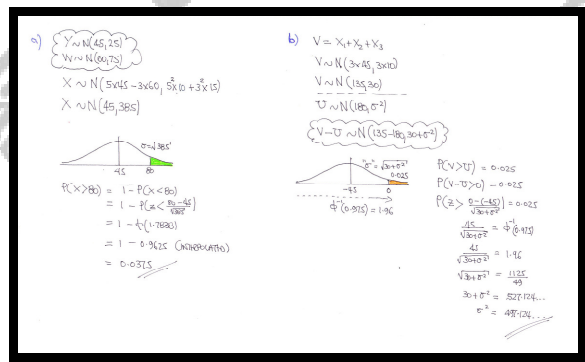 a)
Y~N(45,25)
W~N(60,75)
X~N(5×45-3×60, 5²×10+3²×15)
X~N(45,385)
σ=√385
45 80
P(X>80) = 1 - P(X<80)
= 1 - P(Z< (80-45)/√385)
= 1 - Φ(1.7838)
= 1 - 0.9625 (INTERPOLATED)
= 0.0375
b) V = X₁+X₂+X₃
V~N(3×45, 3×10)
V~N(135,30)
U~N(180,σ²)
V-U~N(135-180, 30+σ²)
"σ"=√30+σ²
0.025
-45 0
Φ⁻¹(0.975) = 1.96
P(V>U) = 0.025
P(V-U>0) = 0.025
P(Z> (0-(-45))/√30+σ²) = 0.025
45/√30+σ² = Φ⁻¹(0.975)
45/√30+σ² = 1.96
√30+σ² = 1125/49
30+σ² = 527.124...
σ² = 497.124...